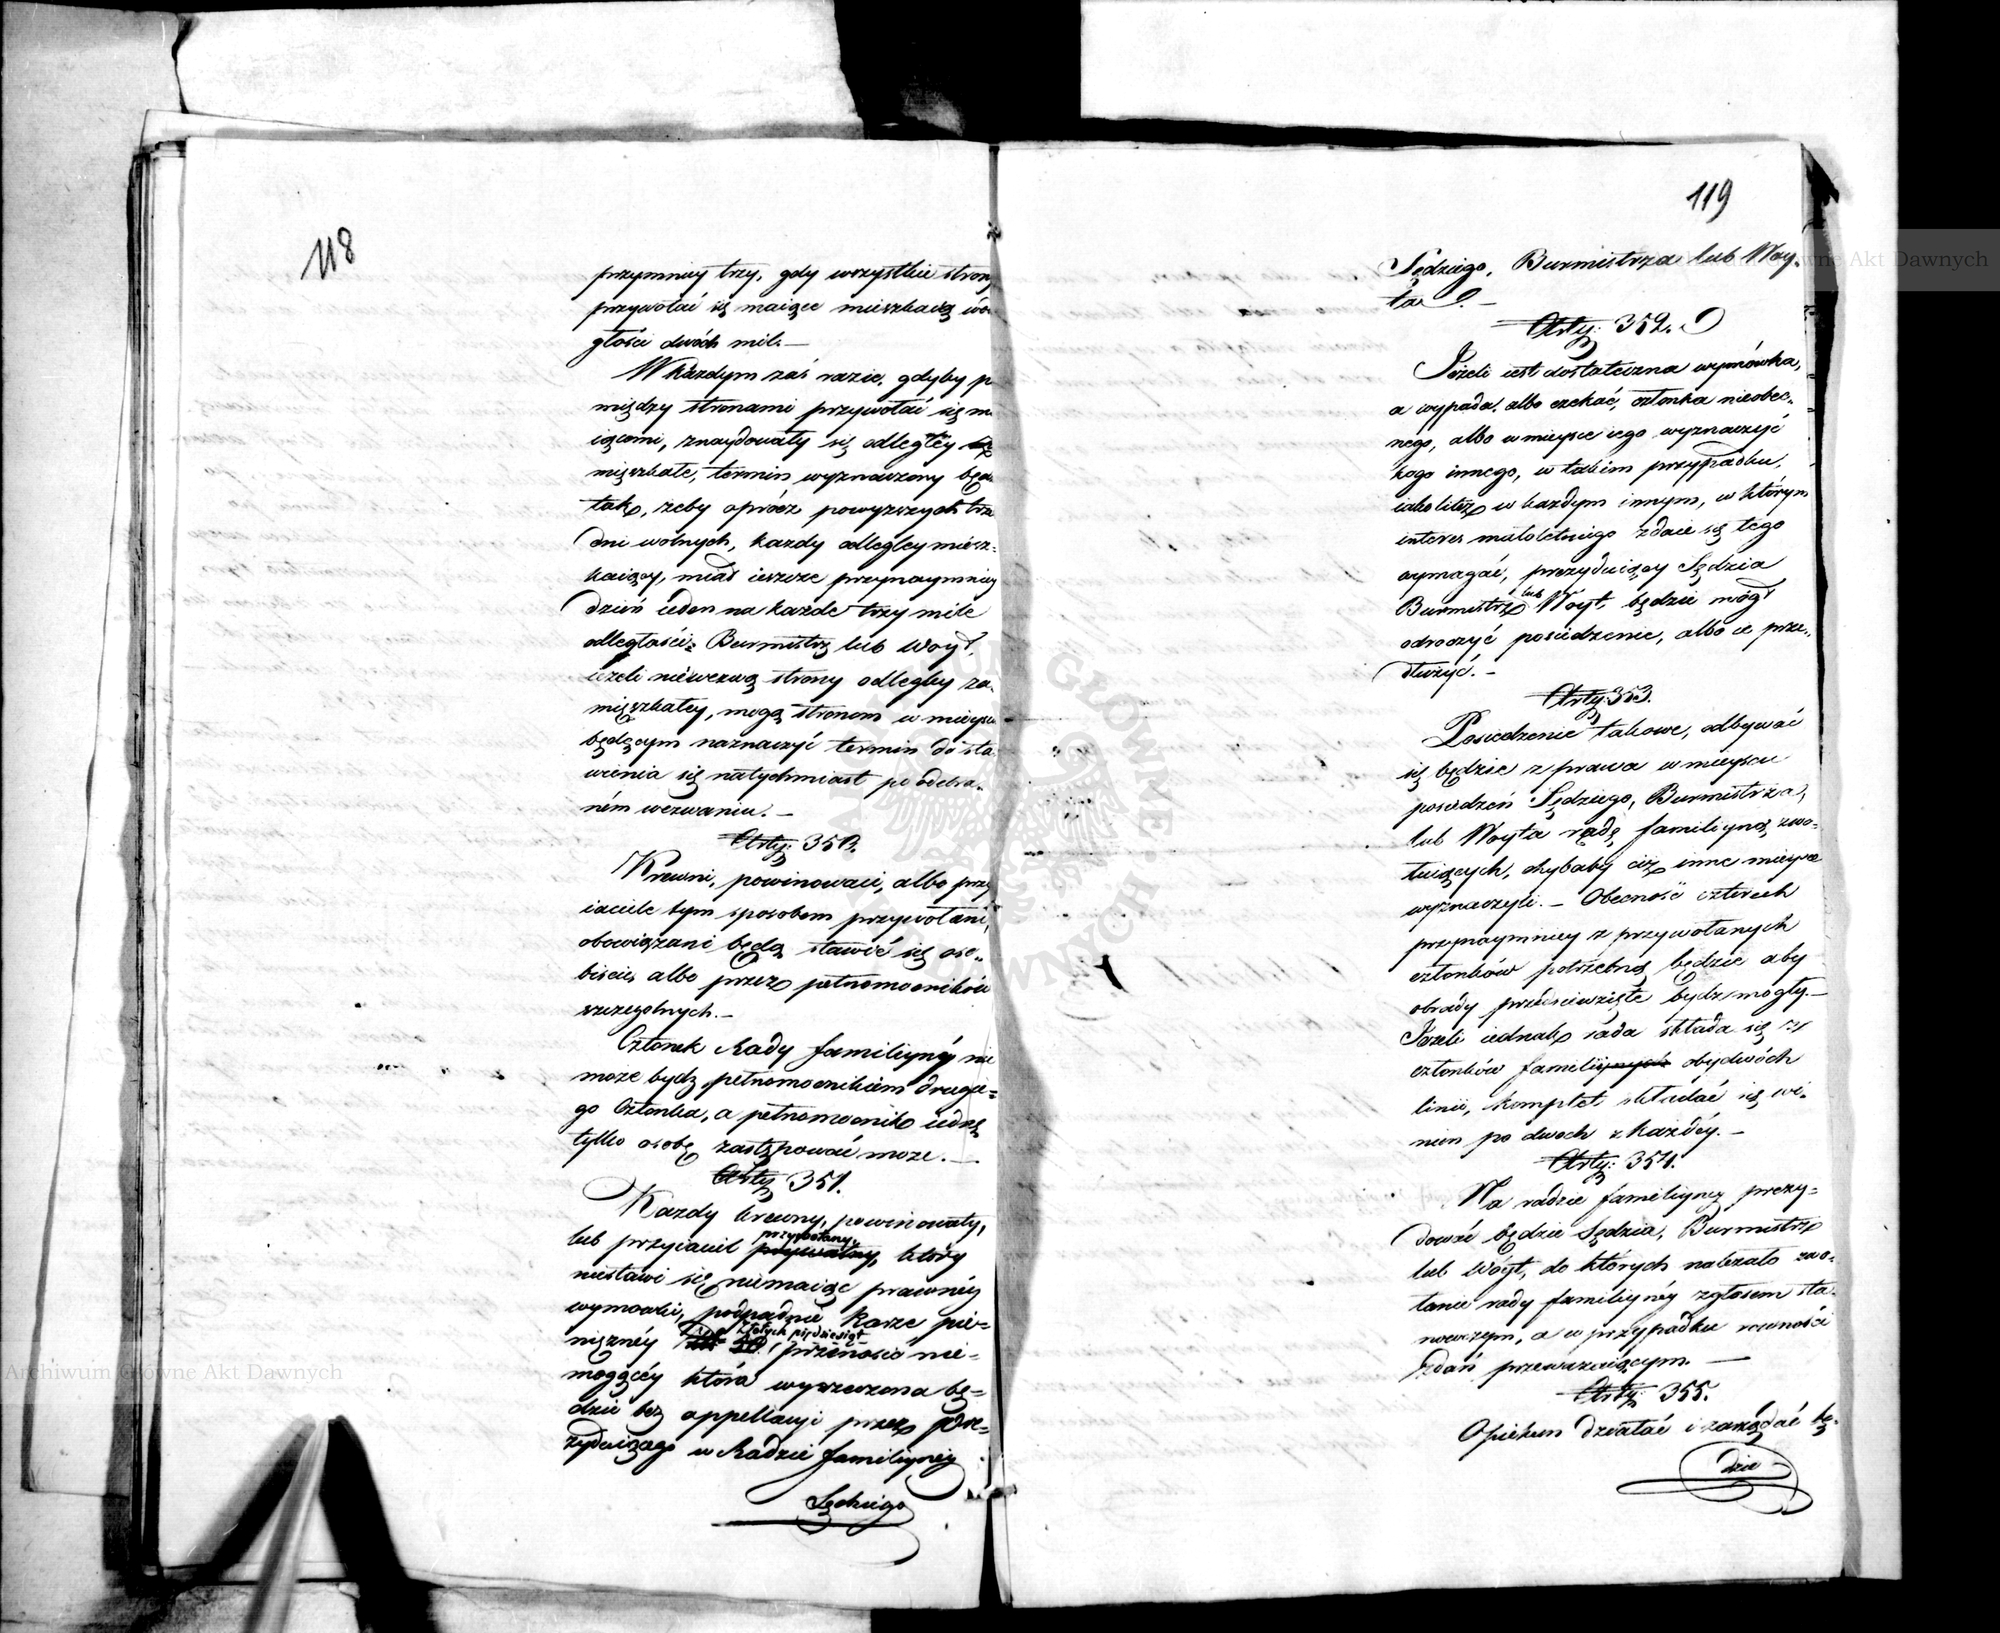 118
przymniey trzy, gdy wszystkie strony
przywołać się maiące mieszkaią w o
głości dwóch mil. —
W każdym zaś razie, gdyby p
między stronami przywołać się m
iącemi, znaydowały się odległéy
mięszkałe, termin wyznaczony będ
tak, żeby oprócz powyższych trze
dni wolnych, każdy odległey miesz-
kaiący, miał ieszcze przynaymniey
dzień ieden na każde trzy mile
odległości. Burmistrz lub Woyt,
ieżeli niewezwą strony odległey za-
mięszkałey, mogą stronom w mieyscu
będącym naznaczyć termin do sta-
wienia się natychmiast po odebra-
ném wezwaniu. —
Arty: 350.
Krewni, powinowaci, albo przy
iaciele tym sposobem przywołani,
obowiązani będą stawić się oso-
biście albo przez pełnomocników
szczególnych. —
Członek Rady familiynéy nie
może bydz pełnomocnikiem drugie-
go Członka, a pełnomocnik iedną
tylko osobę zastępować może. —
Arty: 351.
Każdy krewny, powinowaty,
przywołany,
lub przyiaciel prywatny, który
niestawi się niemaiąc prawnéy
wymówki, podpadnie karze pie-
złotych pięćdziesiąt
niężnéy 50. przenosić nie-
mogącéy która wyrzeczona bę-
dzie bez appellacyi przez pre-
zyduiącego w Radzie familiynéy
Sędziego
119
Sędziego, Burmistrza lub Woy-
ta. —
Arty: 352.
Jeżeli iest dostateczna wymówka,
a wypada albo czekać, członka nieobec-
nego, albo w mieysce iego wyznaczyć
kogo innego, w takim przypadku,
iako liteż w każdym innym, w którym
interes małoletniego zdaie się tego
wymagać, prezyduiący Sędzia
Burmistrz lub Woyt, będzie mógł
odroczyć posiedzenie, albo ie prze-
dłużyć. —
Arty: 353.
Posiedzenie takowe, odbywać
się będzie z prawa w mieyscu
posiedzeń Sędziego, Burmistrza,
lub Woyta radę familiyną zwo-
łuiących, chybaby ciż inne mieysce
wyznaczyli. — Obecność czterech
przynaymniey z przywołanych
członków potrzebną będzie aby
obrady przedsięwzięte bydz mogły. —
Jeżeli iednak rada składa się z
członków familiynych obydwóch
linii, komplet składać się wi-
nien po dwóch z każdéy. —
Arty: 354.
Na radzie familiyney prezy-
dować będzie Sędzia, Burmistrz
lub Wóyt, do których należało zwo-
łanie rady familiynéy z głosem sta-
nowczym, a w przypadku równości
zdań przeważaiącym. —
Arty: 355.
Opiekun działać i zarządzać bę-
dzie